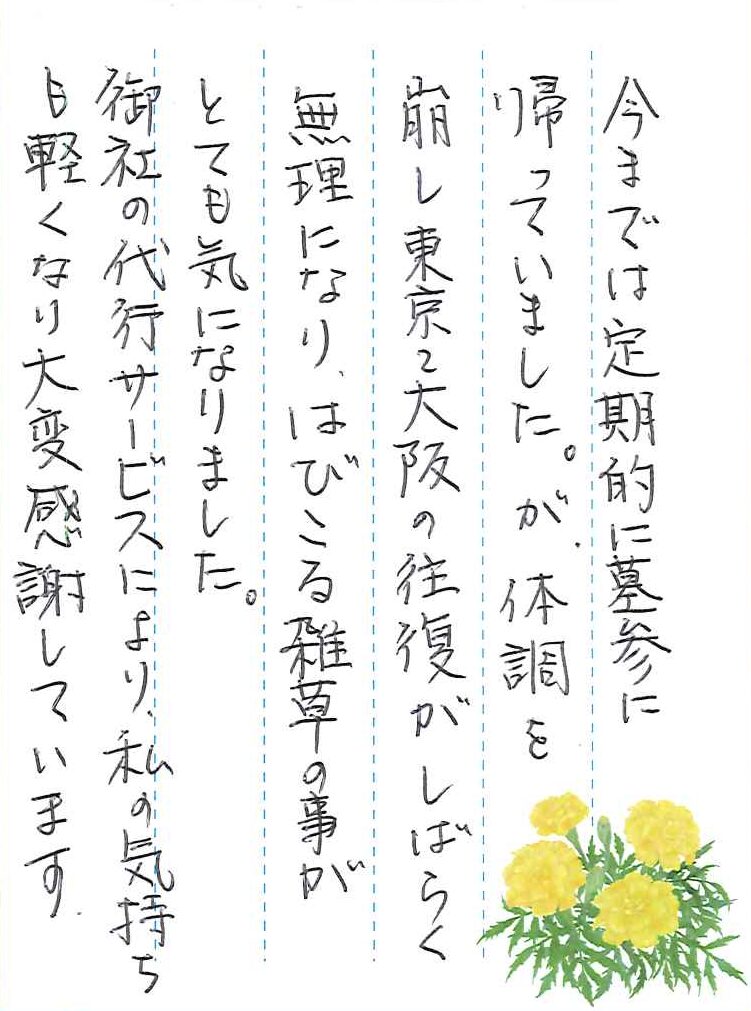 今までは定期的に墓参に
帰っていました。が、体調を
崩し東京〜大阪の往復がしばらく
無理になり、はびこる雑草の事が
とても気になりました。
御社の代行サービスにより、私の気持ち
も軽くなり大変感謝しています。